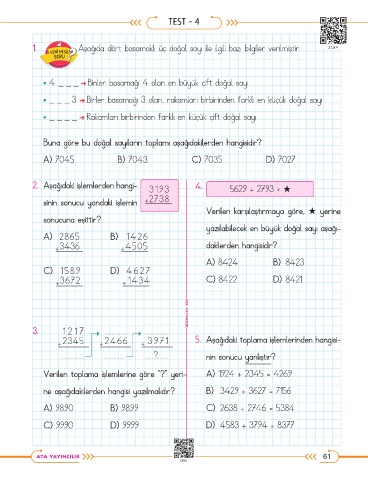 TEST - 4
1. Aşağıda dört basamaklı üç doğal sayı ile ilgili bazı bilgiler verilmiştir.
• 4 _ _ _ ➜ Binler basamağı 4 olan en büyük çift doğal sayı
• _ _ _ 3 ➜ Birler basamağı 3 olan, rakamları birbirinden farklı en küçük doğal sayı
• _ _ _ _ ➜ Rakamları birbirinden farklı en küçük çift doğal sayı
Buna göre bu doğal sayıların toplamı aşağıdakilerden hangisidir?
A) 7045 B) 7043 C) 7035 D) 7027
2. Aşağıdaki işlemlerden hangi-
sinin sonucu yandaki işlemin
sonucuna eşittir?
3193
+2738
A) 2865
+3436
B) 1426
+4505
C) 1589
+3672
D) 4627
+1434
3.
1217
+2345
+2466
+3971
?
Verilen toplama işlemlerine göre "?" yeri-
ne aşağıdakilerden hangisi yazılmalıdır?
A) 9890 B) 9899
C) 9990 D) 9999
4. 5629 + 2793 > ★
Verilen karşılaştırmaya göre, ★ yerine
yazılabilecek en büyük doğal sayı aşağı-
dakilerden hangisidir?
A) 8424 B) 8423
C) 8422 D) 8421
5. Aşağıdaki toplama işlemlerinden hangisi-
nin sonucu yanlıştır?
A) 1924 + 2345 = 4269
B) 3429 + 3627 = 7156
C) 2638 + 2746 = 5384
D) 4583 + 3794 = 8377
ATA YAYINCILIK
61